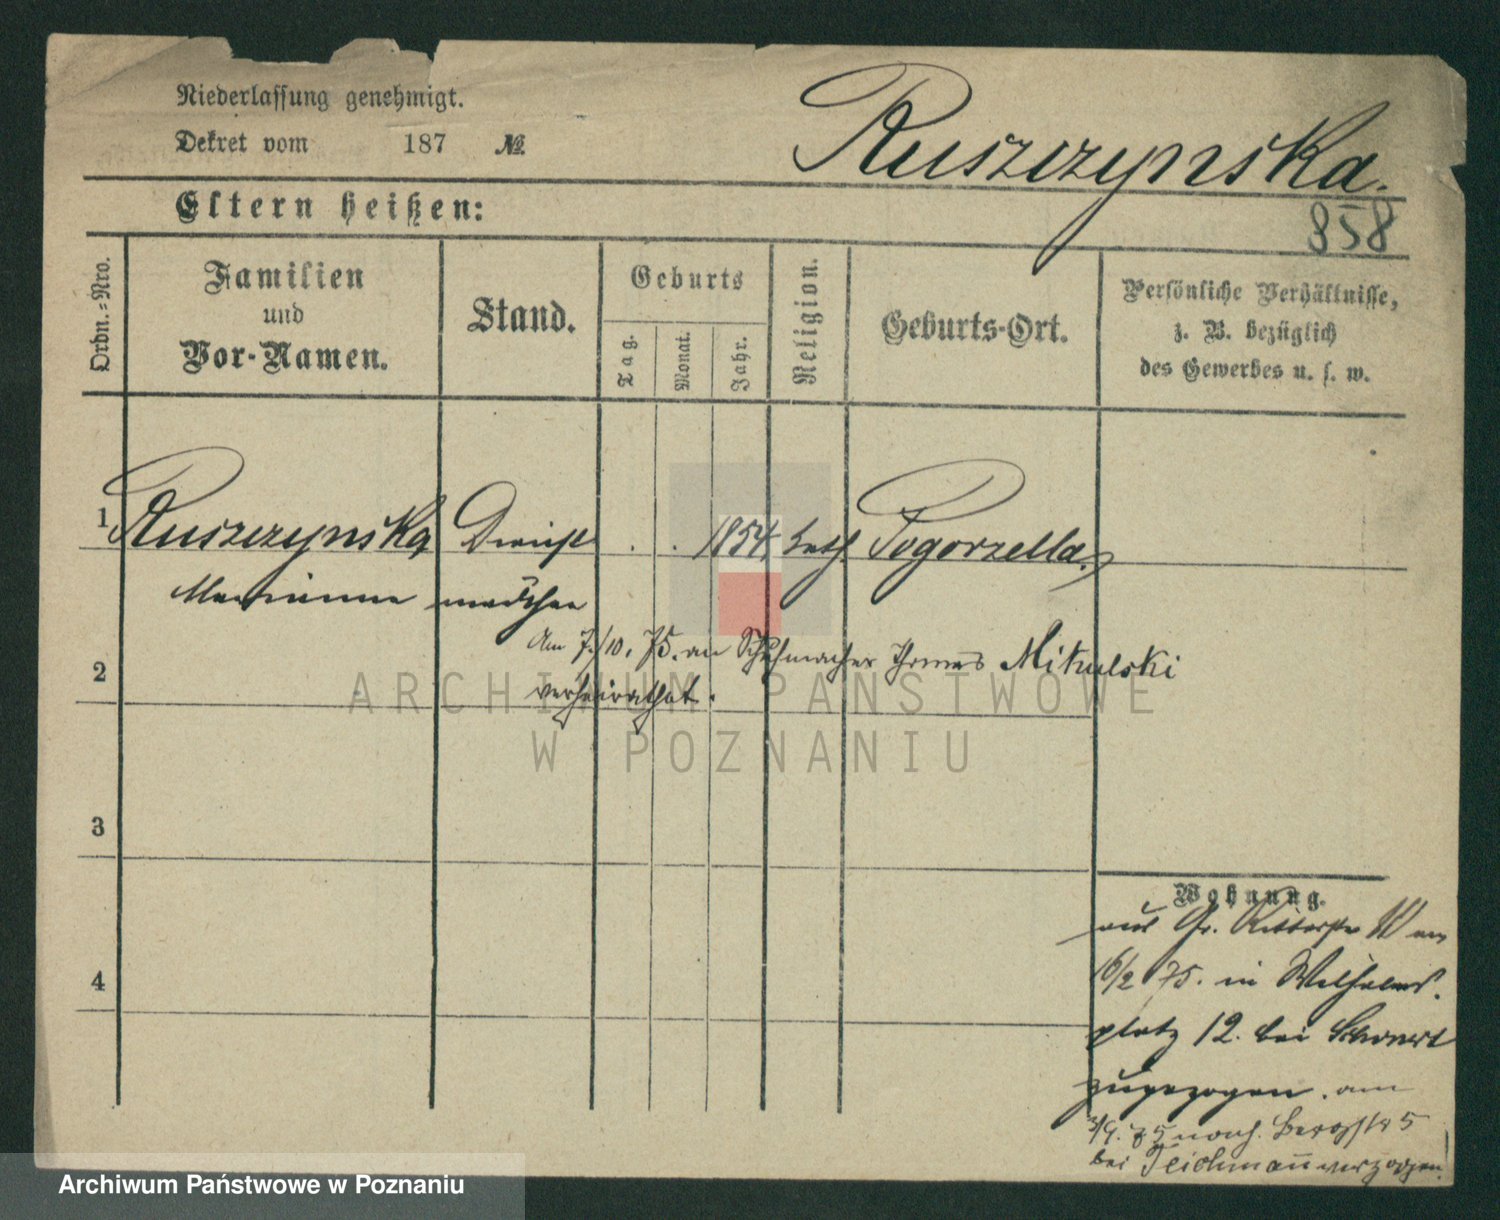 Niederlassung genehmigt.
Dekret vom 187 №
Ruszczynska.
858
Eltern heißen:
Ordn.-Nro.
Familien
und
Vor-Namen.
Stand.
Geburts
Tag.
Monat.
Jahr.
Religion.
Geburts-Ort.
Persönliche Verhältnisse,
z. B. bezüglich
des Gewerbes u. s. w.
1 Ruszczynska Dienst . . 1854 kath. Pogorzella.
Marianna mädchen
Am 7./10. 75. an Schuhmacher Thomas Mikulski
2
verheirathet.
ARCHIWUM PAŃSTWOWE
W POZNANIU
3
Wohnung.
aus Gr. Ritterstr am
4
16/2 75. in Wilhelms-
platz 12. bei
zugezogen. am
3/9. 75 nach Bergstr 5
bei Teichmann verzogen.
Archiwum Państwowe w Poznaniu